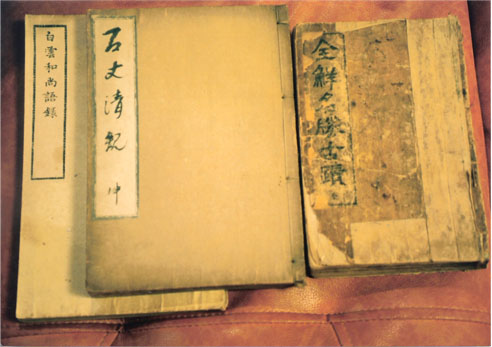 白雲和尚語錄
百丈清規 坤
全鮮名勝古蹟